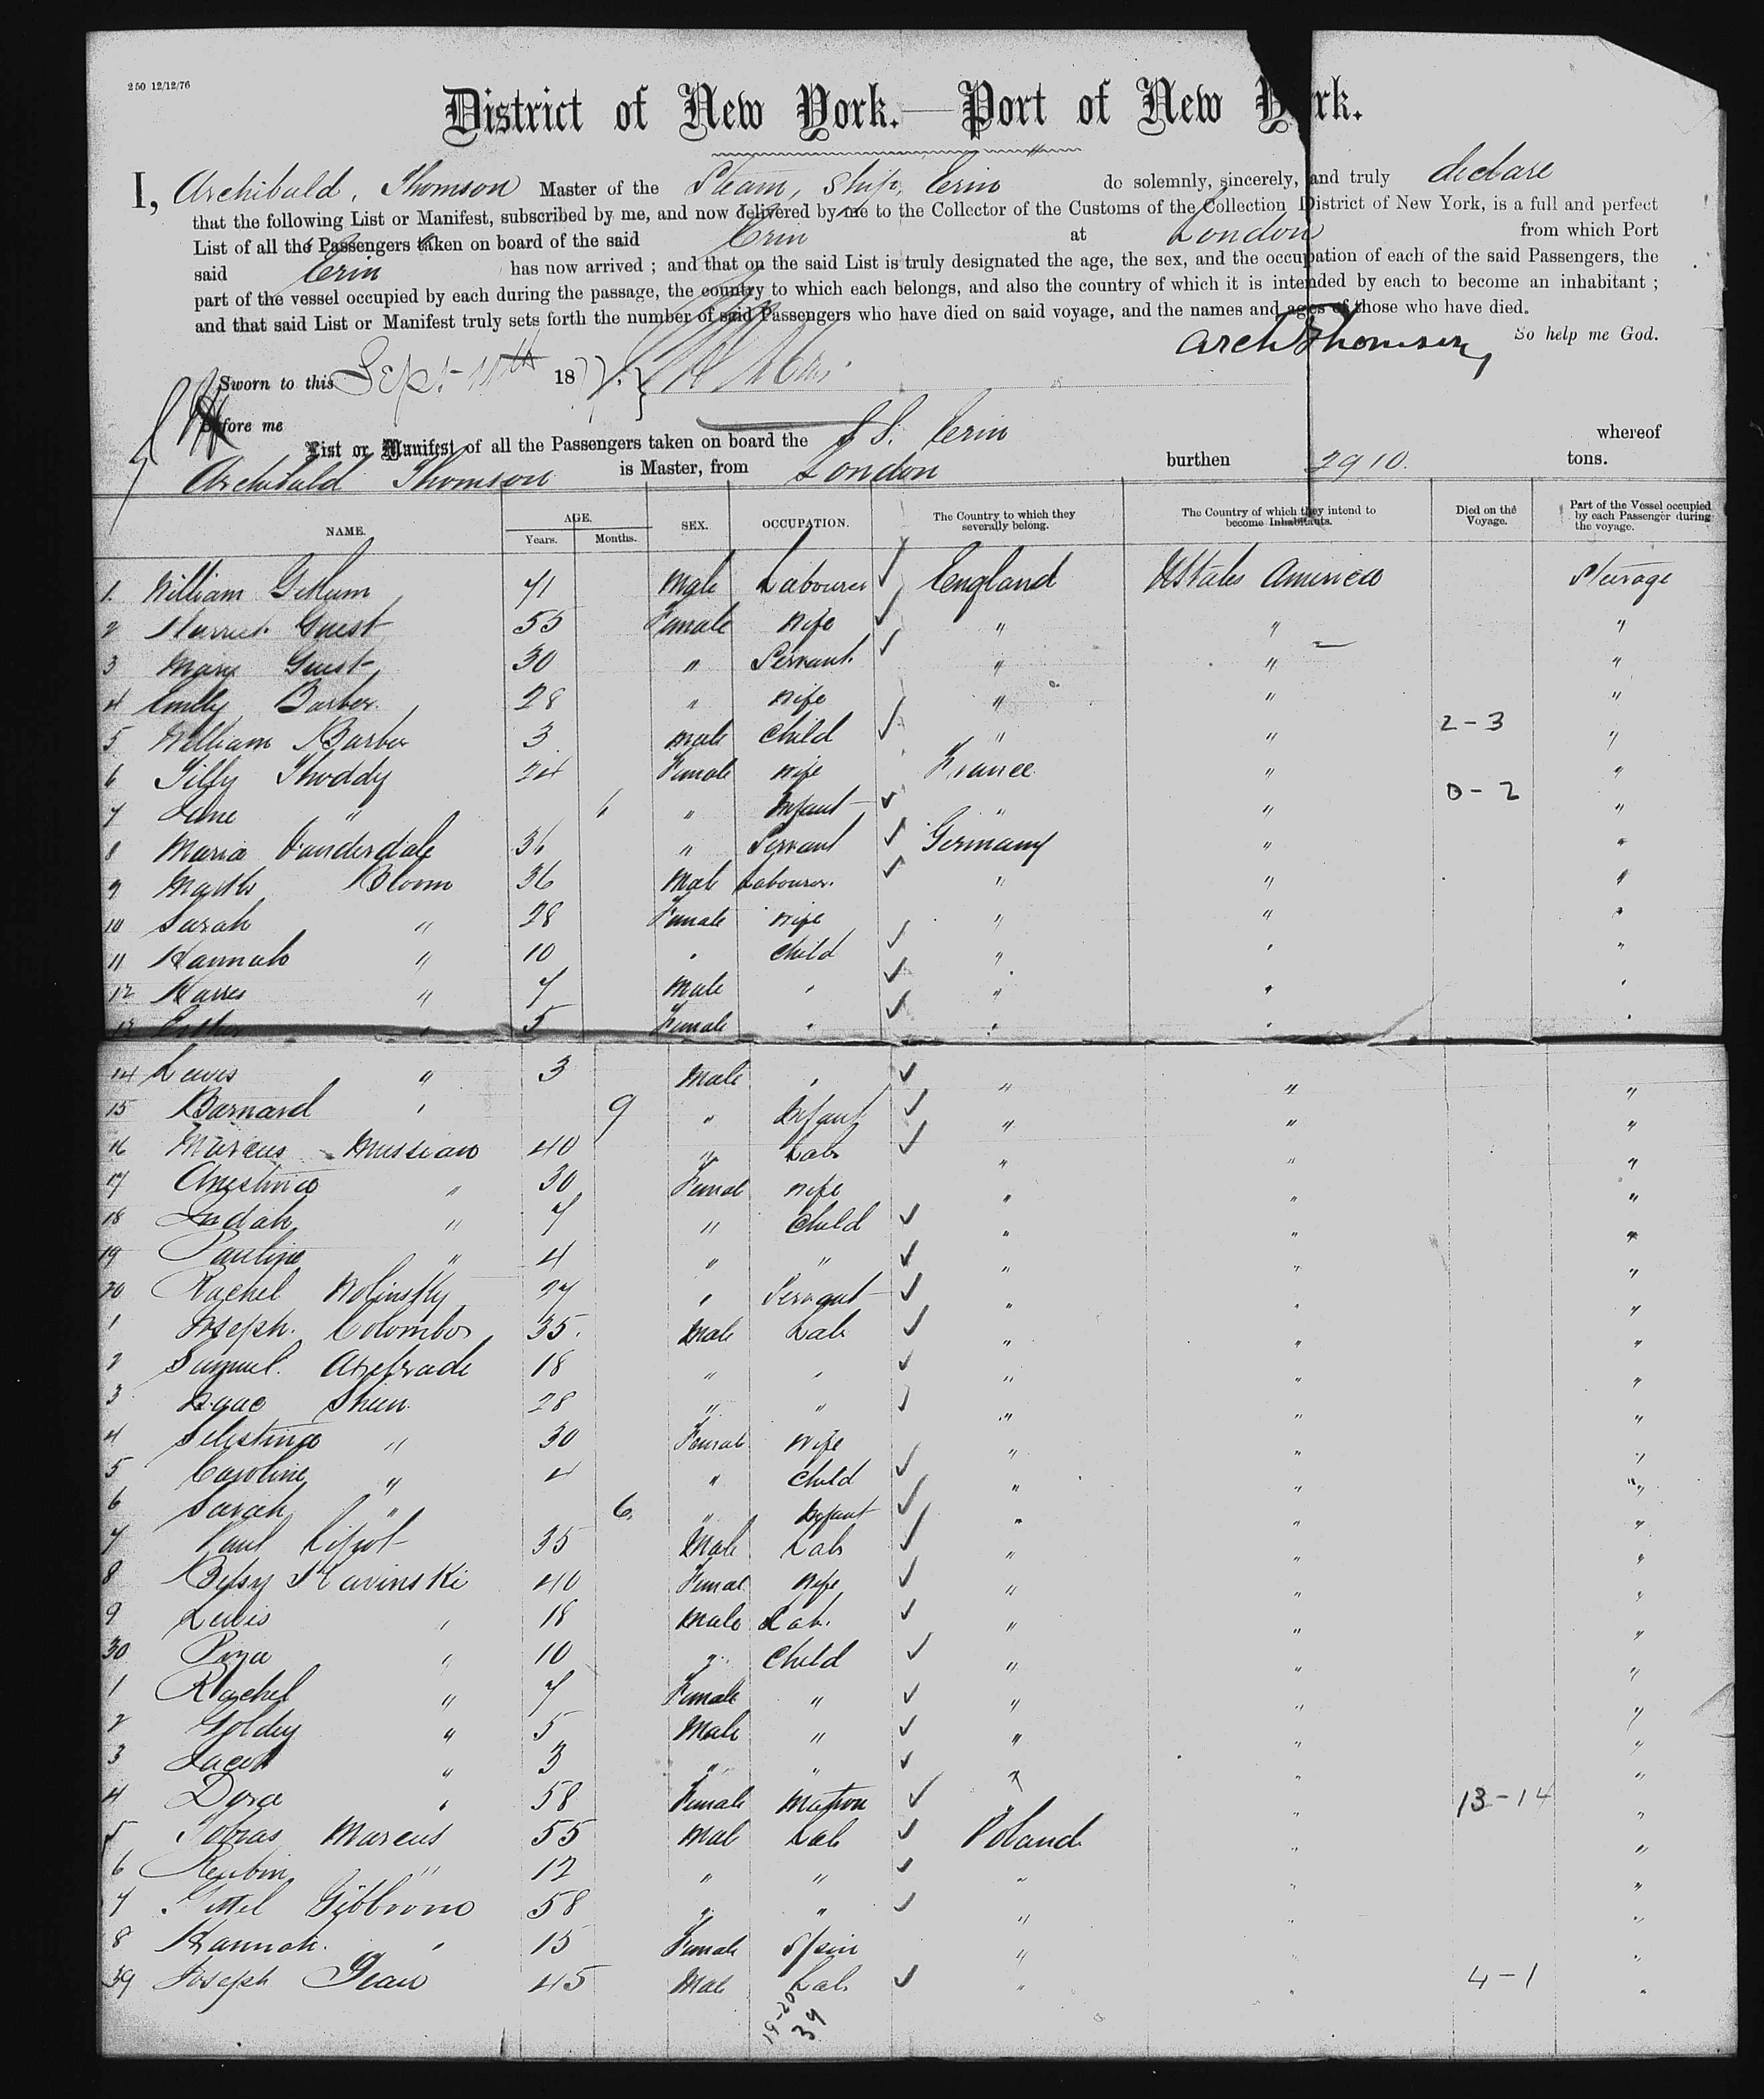 250 12/12/76
District of New York.—Port of New York.
I, Archibald, Thomson Master of the Steam, Ship, Erin do solemnly, sincerely, and truly declare
that the following List or Manifest, subscribed by me, and now delivered by me to the Collector of the Customs of the Collection District of New York, is a full and perfect
List of all the Passengers taken on board of the said Erin at London from which Port
said Erin has now arrived ; and that on the said List is truly designated the age, the sex, and the occupation of each of the said Passengers, the
part of the vessel occupied by each during the passage, the country to which each belongs, and also the country of which it is intended by each to become an inhabitant ;
and that said List or Manifest truly sets forth the number of said Passengers who have died on said voyage, and the names and ages of those who have died.
So help me God.
Arch Thomson
Sworn to this Sept 18
Before me
List or Manifest of all the Passengers taken on board the S S. Erin whereof
Archibald Thomson is Master, from London burthen 2910. tons.
NAME. AGE. Years. Months. SEX. OCCUPATION. The Country to which they severally belong. The Country of which they intend to become Inhabitants. Died on the Voyage. Part of the Vessel occupied by each Passenger during the voyage.
1. William 71 Male Labourer England UStates America Steerage
2 Harriet Guest 55 Female Wife " " "
3 Mary Guest 30 " Servant " " "
4 Emily Barber 28 " Wife " " "
5 William Barber 3 Male Child " " 2-3 "
6 Tilly 24 Female Wife France " "
7 Jane " " Infant " " 0-2 "
8 Maria Vanderdale 36 " Servant Germany " "
9 Bloom 36 Male Labourer " " "
10 Sarah " 28 Female Wife " " "
11 Hannah " 10 " Child " " "
12 Harres " 7 Male " " " "
13 Esther " 5 Female " " " "
14 Lewis " 3 Male " " " "
15 Barnard " 9 " Infant " " "
16 Marcus 40 " Lab " " "
17 " 30 Female Wife " " "
18 " 7 " Child " " "
19 Pauline " 4 " " " " "
20 Rachel Wolinsky 27 " Servant " " "
1 Joseph Colombo 35. Male Lab " " "
2 Samuel 18 " " " " "
3 Isaac 28 " " " " "
4 Selestina " 30 Female Wife " " "
5 Caroline " 4 " Child " " "
6 Sarah " 6 " Infant " " "
7 Paul 35 Male Lab " " "
8 Betsy 40 Female Wife " " "
9 Lewis " 18 Male Lab. " " "
30 " 10 " Child " " "
1 Rachel " 7 Female " " " "
2 Goldey " 5 Male " " " "
3 Jacob " 3 " " " " "
4 Dora " 58 Female Matron " " 13-14 "
5 Tobias Marcus 55 Male Lab Poland " "
6 Reubin " 12 " " " " "
7 58 " " " " "
8 Hannah " 15 Female Spin " " "
39 Joseph 45 Male Lab " " 4-1 "
19-20
39